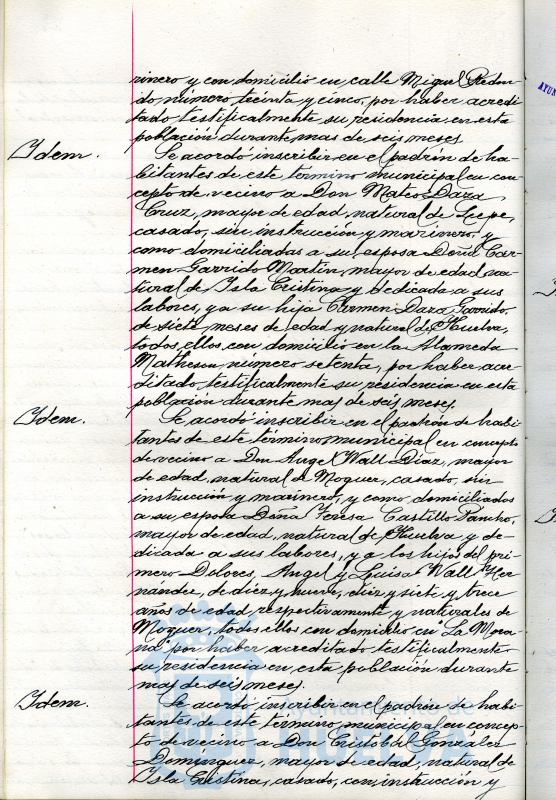 rinero y con domicilio en calle Miguel Redon
do, número treinta y cinco, por haber acredi
tado testificalmente su residencia en esta
población durante mas de seis meses.
Idem. Se acordó inscribir en el padrón de ha-
bitantes de este término municipal en con-
cepto de vecino a Don Mateo Daza
Cruz, mayor de edad, natural de Lepe,
casado, sin instrucción y marinero, y
como domiciliadas a su esposa Doña Car-
men Garrido Martín, mayor de edad, na-
tural de Isla Cristina y dedicada a sus
labores, y a su hija Carmen Daza Garrido,
de siete meses de edad y natural de Huelva,
todos ellos con domicilio en la Alameda
Matheson, número setenta, por haber acre-
ditado testificalmente su residencia en esta
población durante mas de seis meses.
Idem. Se acordó inscribir en el padrón de habi-
tantes de este término municipal en concepto
de vecino a Don Angel Wall Díaz, mayor
de edad, natural de Moguer, casado, sin
instrucción y marinero, y como domiciliados
a su esposa Doña Teresa Castillo Pancho,
mayor de edad, natural de Huelva y de-
dicada a sus labores, y a los hijos del pri-
mero Dolores, Angel y Luisa Wall Her-
nández, de diez y nueve, diez y siete y trece
años de edad respectivamente y naturales de
Moguer, todos ellos con domicilio en "La Mora-
na" por haber acreditado testificalmente
su residencia en esta población durante
mas de seis meses.
Idem. Se acordó inscribir en el padrón de habi-
tantes de este término municipal en concep-
to de vecino a Don Cristobal González
Domínguez, mayor de edad, natural de
Isla Cristina, casado, con instrucción y
AYUN
HUELVA